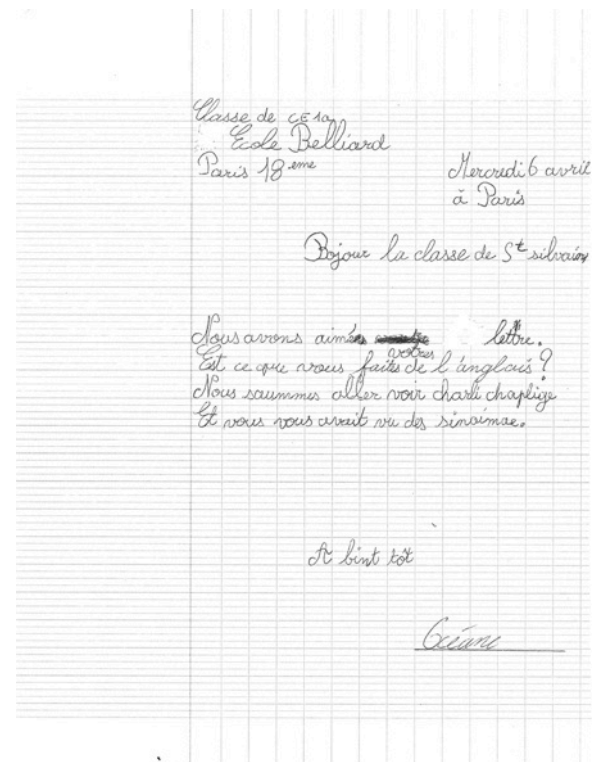 Classe de CE1a
Ecole Belliard
Paris 18 eme
Mercredi 6 avril
à Paris
Bojour la classe de St silvain
Nous avons aimés votres lettre.
Est ce que vous faites de l'anglais ?
Nous saummes aller voir charli chaplige
Et vous vous avait vu des sinaimae.
A bint tôt
Océane